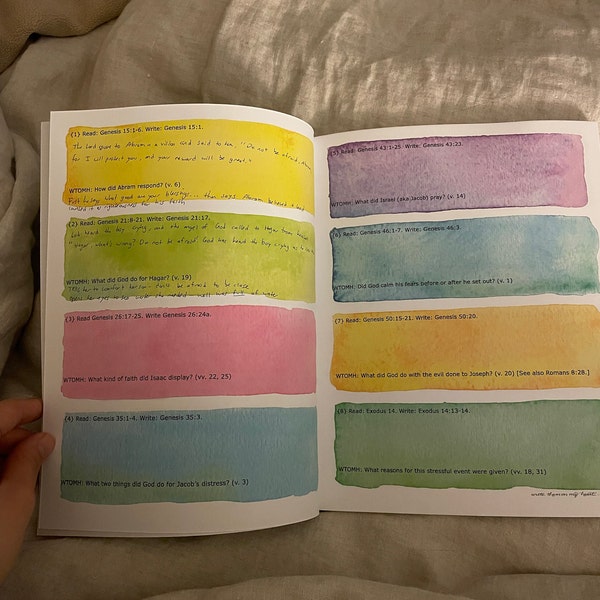 (1) Read: Genesis 15:1-6. Write: Genesis 15:1.
The Lord spoke to Abram in a vision and said to him, "Do not be afraid, Abram
for I will protect you, and your reward will be great."
WTOMH: How did Abram respond? (v. 6)
what good are your blessings... then says Abram believed
(2) Read: Genesis 21:8-21. Write: Genesis 21:17.
God heard the boy crying, and the angel of God called to Hagar from heaven
"Hagar, what's wrong? Do not be afraid! God has heard the boy crying as
WTOMH: What did God do for Hagar? (v. 19)
to comfort her afraid to be close
her eyes to see well full of water
(3) Read Genesis 26:17-25. Write Genesis 26:24a.
WTOMH: What kind of faith did Isaac display? (vv. 22, 25)
(4) Read: Genesis 35:1-4. Write: Genesis 35:3.
WTOMH: What two things did God do for Jacob's distress? (v. 3)
(5) Read: Genesis 43:1-25. Write: Genesis 43:23.
WTOMH: What did Israel (aka Jacob) pray? (v. 14)
(6) Read: Genesis 46:1-7. Write: Genesis 46:3
WTOMH: Did God calm his fears before or after he set out? (v. 1)
(7) Read: Genesis 50:15-21. Write: Genesis 50:20.
WTOMH: What did God do with the evil done to Joseph? (v. 20) [See also Romans 8:28.]
(8) Read: Exodus 14. Write: Exodus 14:13-14.
WTOMH: What reasons for this stressful event were given? (vv. 18, 31)
write them on my heart